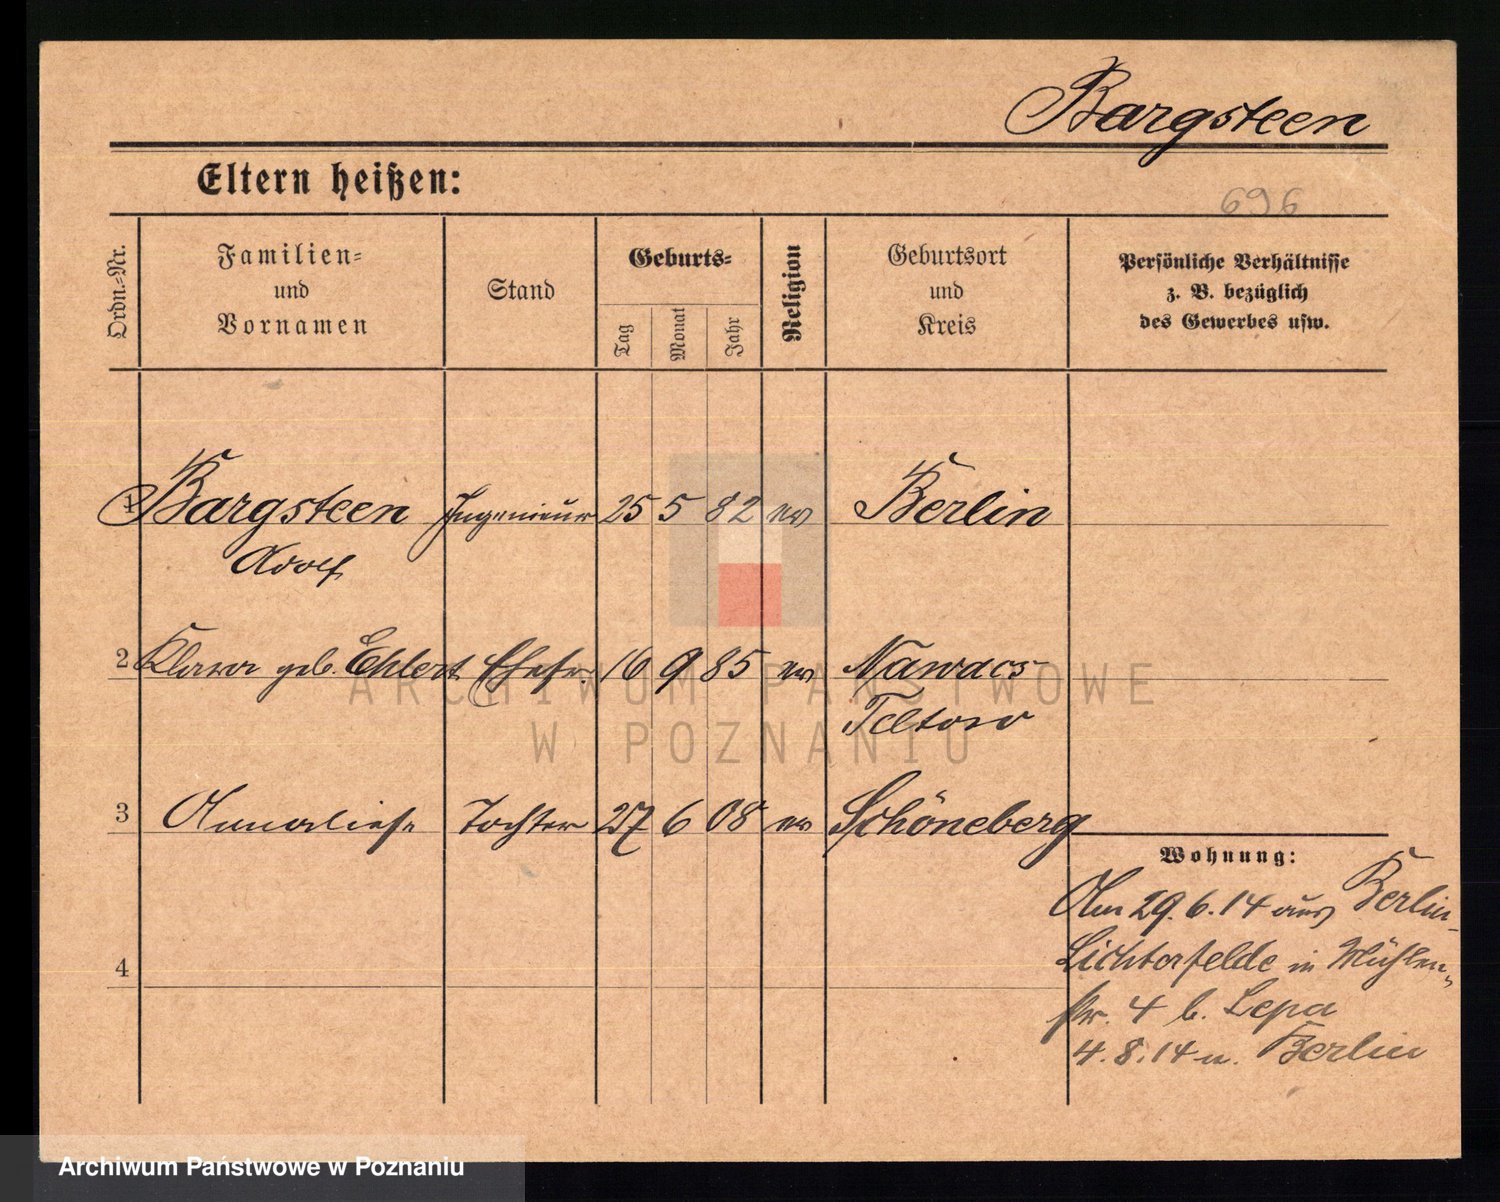 Bargsteen
Eltern heißen:
696
Ordn.-Nr.
Familien-
und
Vornamen
Stand
Geburts-
Tag
Monat
Jahr
Religion
Geburtsort
und
Kreis
Persönliche Verhältnisse
z. B. bezüglich
des Gewerbes usw.
1 Bargsteen Ingenieur 25 5 82 ev Berlin
Adolf
2 Klara geb. Ehlert Ehefr. 16 9 85 ev
Teltow
3 Annaliese Tochter 27 6 08 ev Schöneberg
Wohnung:
Am 29.6.14 aus Berlin-
Lichterfelde in Mühlen-
str. 4 b. Lepa
4
4.8.14 n. Berlin
ARCHIWUM PAŃSTWOWE
W POZNANIU
Archiwum Państwowe w Poznaniu